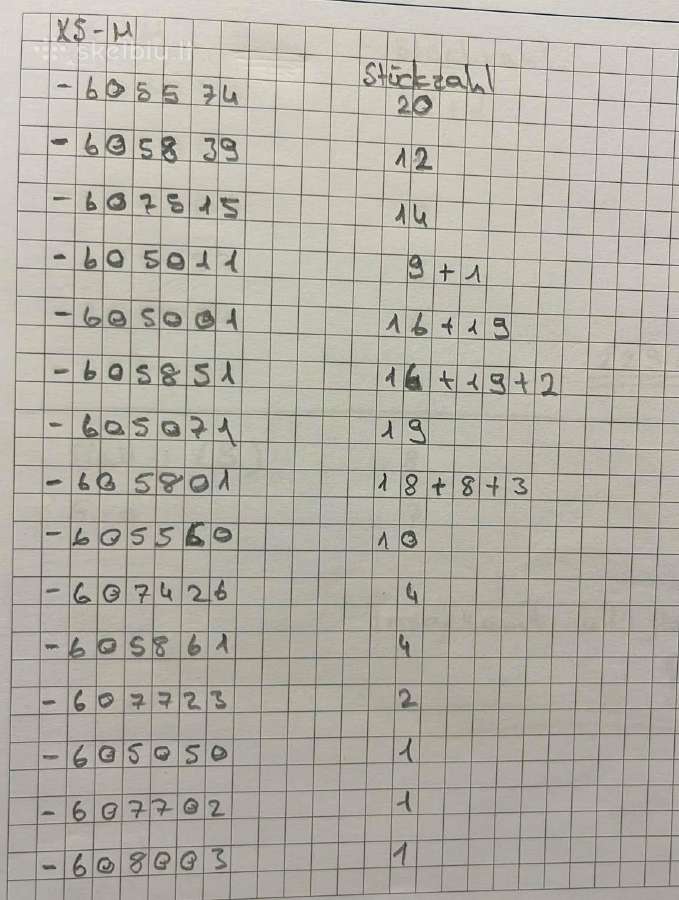 XS-M
skelbiu.lt
Stückzahl
- 605574 20
- 605839 12
- 607815 14
- 605011 9+1
- 605001 16+19
- 605851 16+19+2
- 605071 19
- 605801 18+8+3
- 605560 10
- 607426 4
- 605861 4
- 607723 2
- 605050 1
- 607702 1
- 608003 1